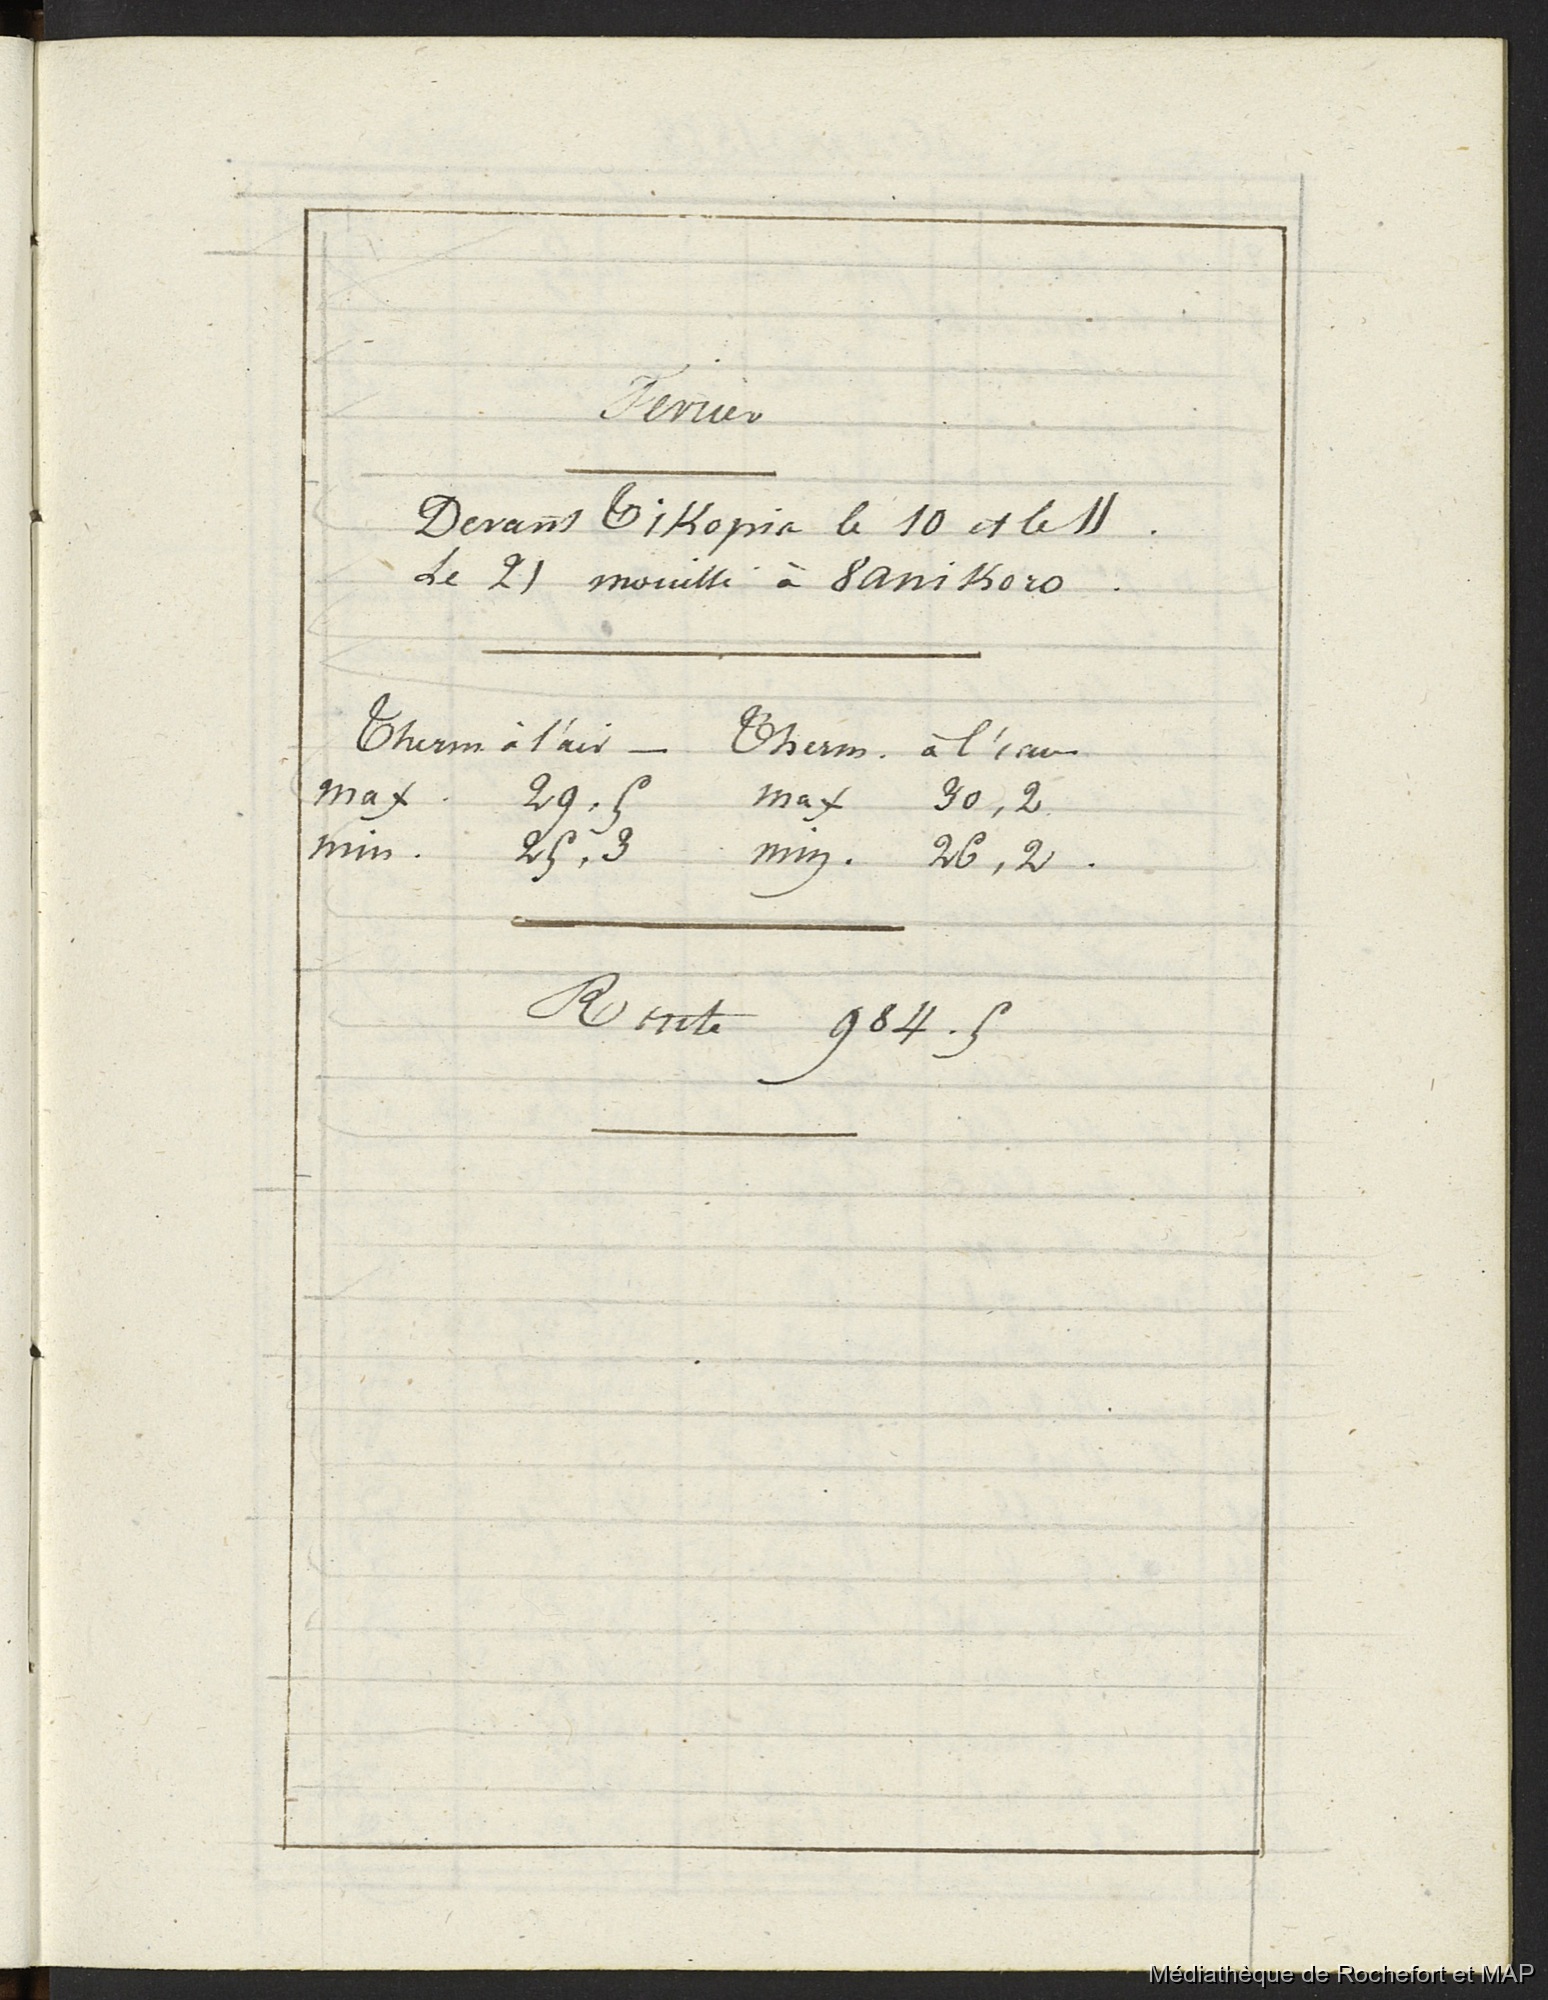 Fevrier
Devant Tikopia le 10 et le 11.
Le 21 mouillé à Vanikoro.
Therm à l'air — Therm. à l'eau
max. 29.5 max 30,2
min. 25,3 min. 26,2.
Route 984.5
Médiathèque de Rochefort et MAP